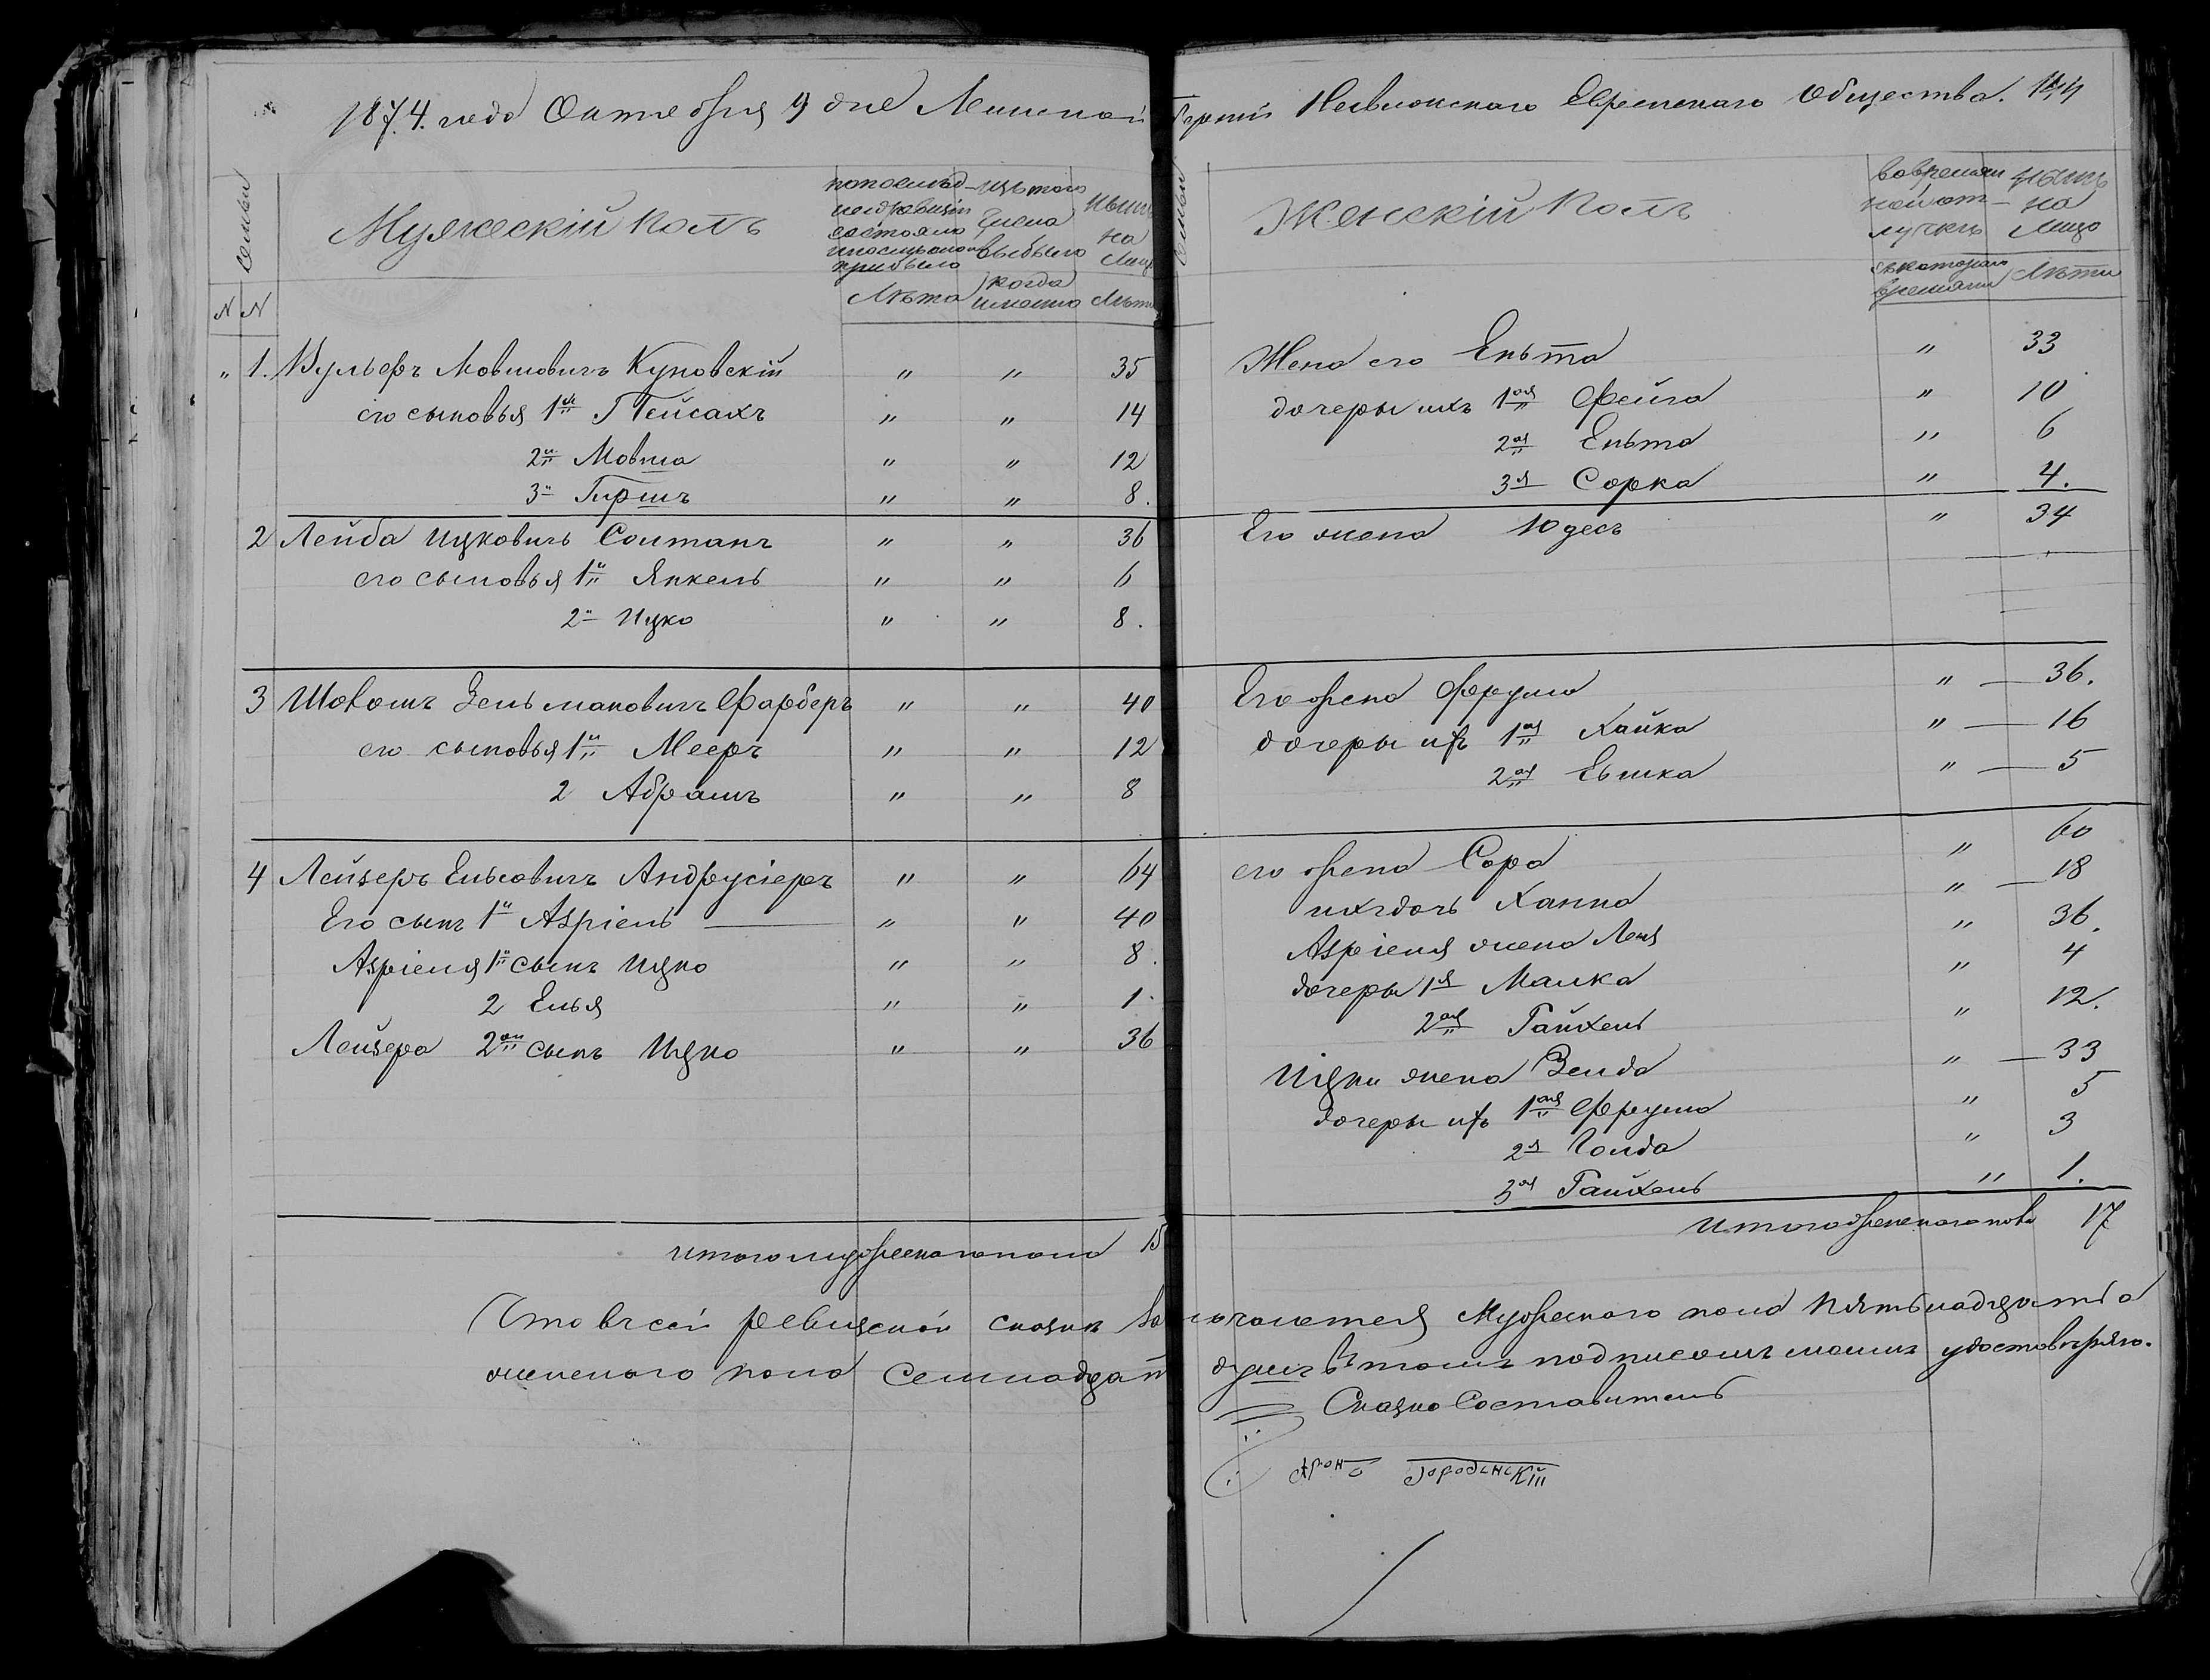 1874. года Октебря 9 дне Минской Губерніи Несвижскаго Еврейскаго Общества. 144
Семьи
N N
Мужескій полъ
по последней ревизіи состояло и после оной прибыло
Лѣта
изъ того числа выбыло
когда именно
нынѣ на Лицо
Лѣта
Семьи
Женскій полъ
во временной отлучкѣ
съ котораго времени
нынѣ на Лицо
Лѣта
" 1. Вульфъ Мовшовичъ Куповскій " " 35
его сыновья 1й Пейсахъ " " 14
2й Мовша " " 12
3й Гиршъ " " 8.
2 Лейба Ицковичъ Солтанъ " " 36
его сыновья 1й Янкель " " 6
2й Ицко " " 8.
3 Шоломъ Зельмановичъ Фарберъ " " 40
его сыновья 1й Мееръ " " 12
2 Абрамъ " " 8
4 Лейзеръ Ельевичъ Андрусіеръ " " 64
Его сынъ 1й Азріель " " 40
Азріеля 1й сынъ Ицко " " 8.
2 Елья " " 1.
Лейзера 2ой сынъ Ицко " " 36
итого мужескаго пола 15
Жена его Ельта " 33
дочеры ихъ 1ая Фейга " 10
2ая Ельта " 6
3я Сорка " 4.
Его жена Юдесъ " 34
Его жена Фрума " 36.
дочеры ихъ 1ая Хайка " 16
2ая Ешка " 5
его жена Сора " 60
ихъ дочь Ханна " 18
Азріеля жена Лея " 36.
дочеры 1я Малка " 4
2ая Райхель " 12.
Ицки жена Зелда " 33
дочеры ихъ 1ая Фрума " 5
2я Голда " 3
3ая Райхель " 1.
итого женскаго пола 17
Что в сей ревизской сказкѣ заключается Мужескаго пола пятьнадцать а
женскаго пола семнадцать душъ в томъ подписомъ моимъ удостовѣряю.
Сказко Составитель
Аронъ Городынскій